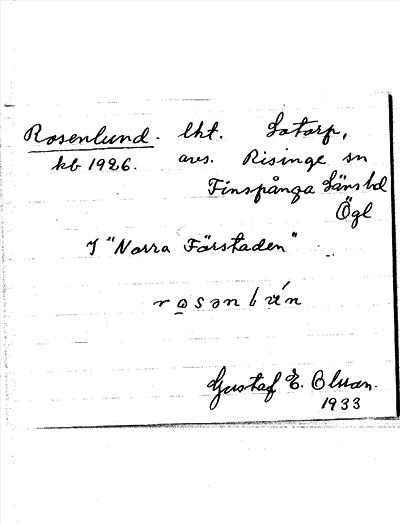 Rosenlund. lht. Sotorp,
kb 1926. avs. Risinge sn
Finspånga läns hd
Ögl
I "Norra Förstaden"
Gustaf E. Olsson.
1933